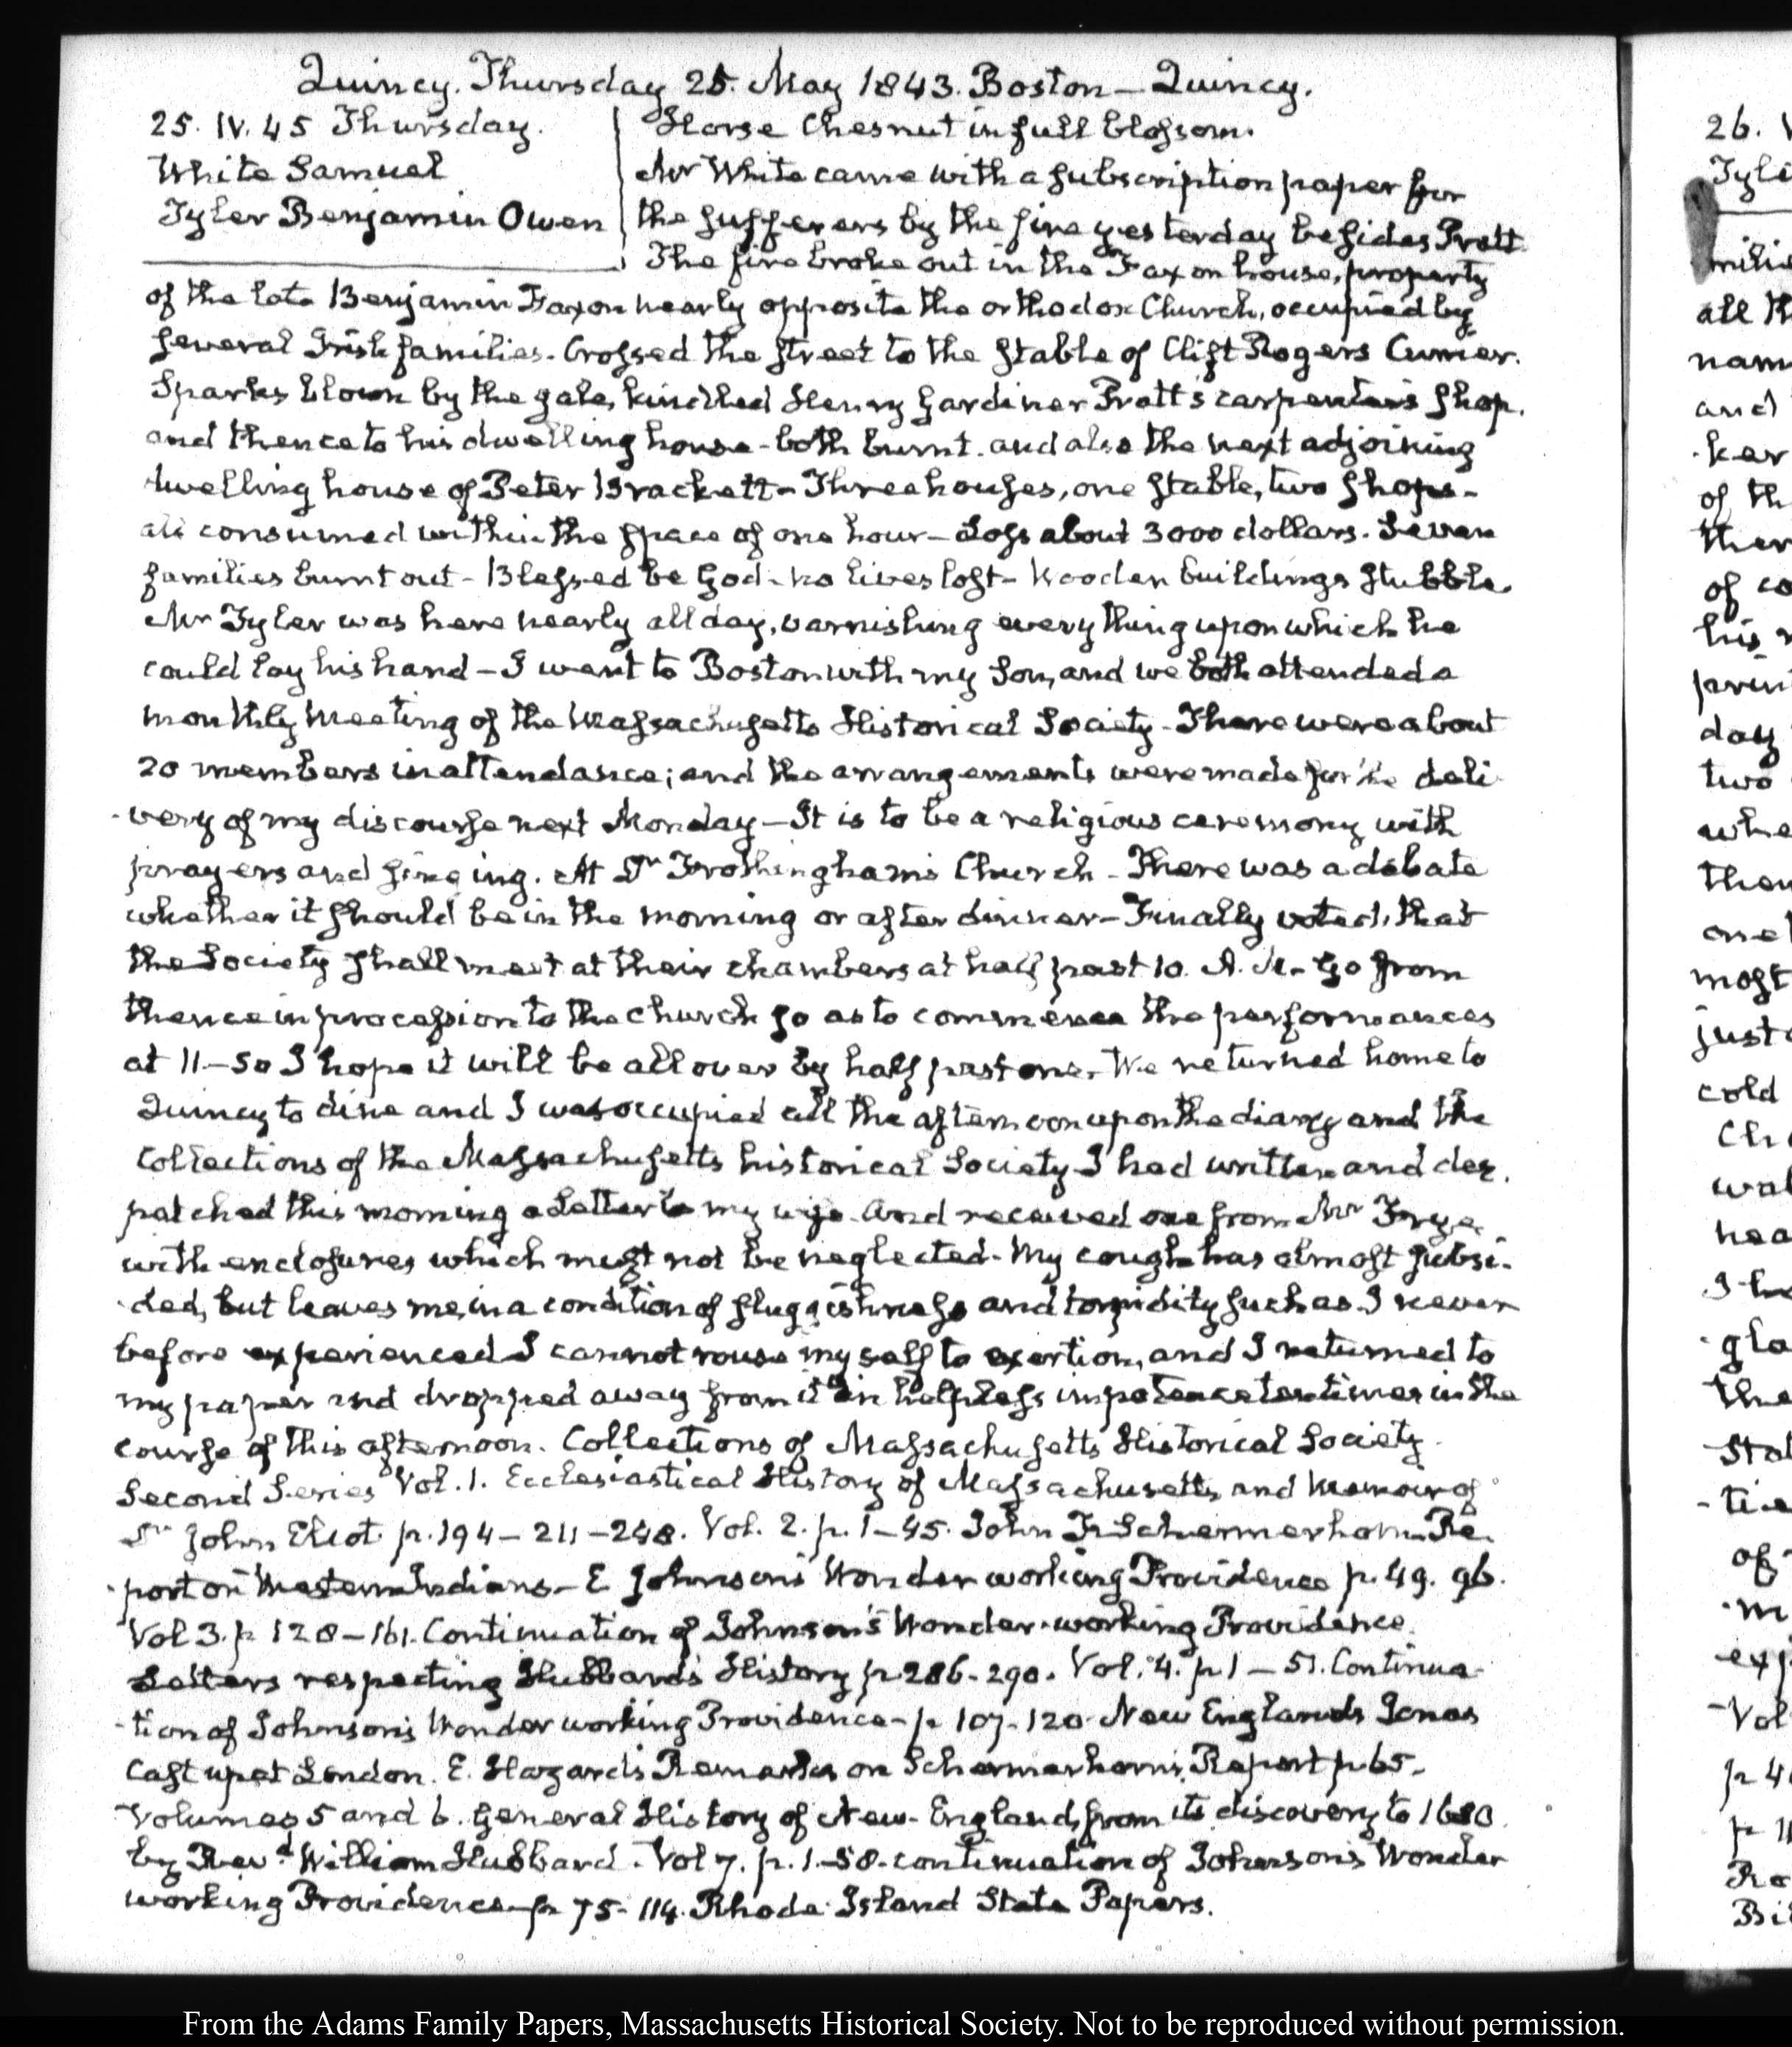 Quincy. Thursday 25. May 1843. Boston – Quincy.
25. IV. 45 Thursday.
White Samuel
Tyler Benjamin Owen
Horse Chesnut in full blossom.
Mr White came with a subscription paper for
the sufferers by the fire yesterday besides Pratt
The fire broke out in the Faxon house, property
of the late Benjamin Faxon nearly opposite the orthodox Church, occupied by
several Irish families. Crossed the street to the stable of Clift Rogers
Sparks blown by the gale, kindled Henry Gardiner Pratt's carpenter's shop.
and thence to his dwelling house - both burnt. and also the next adjoining
dwelling house of Peter Brackett – Three houses, one stable, two shops –
all consumed within the space of one hour – Loss about 3000 dollars. Seven
families burnt out – Blessed be God – no lives lost – Wooden buildings stubble.
Mr Tyler was here nearly all day, varnishing every thing upon which he
could lay his hand – I went to Boston with my Son, and we both attended a
monthly meeting of the Massachusetts Historical Society – There were about
20 members in attendance; and the arrangements were made for the deli
-very of my discourse next Monday – It is to be a religious ceremony with
prayers and singing. At Dr Frothingham's Church – There was a debate
whether it should be in the morning or after dinner – Finally voted, that
the Society shall meet at their chambers at half past 10. A.M. – go from
thence in procession to the church so as to commence the performances
at 11 – So I hope it will be all over by half past one. We returned home to
Quincy to dine and I was occupied all the afternoon upon the diary and the
Collections of the Massachusetts historical Society I had written and des.
patched this morning a Letter to my wife. And received one from Mr Frye
with enclosures which must not be neglected – My cough has almost subsi-
-ded, but leaves me, in a condition of sluggishness and torpidity such as I never
before experienced I cannot rouse myself to exertion, and I returned to
my paper and dropped away from it in helpless impotence ten times in the
course of this afternoon. Collections of Massachusetts Historical Society.
Second Series Vol. 1. Ecclesiastical History of Massachusetts, and Memoir of
Dr John Eliot. p. 194 – 211 – 248. Vol. 2. p. 1 – 45. John F. Schermerhorn. Re.
-port on Western Indians – E Johnson's Wonder working Providence p. 49. 96.
Vol 3. p 128 – 161. Continuation of Johnson's Wonder-working Providence.
Letters respecting Hubbard's History p. 286 – 290. Vol. 4. p. 1 – 51. Continua-
-tion of Johnson's Wonder working Providence – p. 107 – 120 New England's Jonas
Cast up at London. E. Hazard's Remarks on Schermerhorn's Report p. 65.
Volumes 5 and 6. General History of New-England, from its discovery to 1680
by Revd. William Hubbard. Vol 7. p. 1 – 58. continuation of Johnson's Wonder
working Providence – p. 75 – 114. Rhode Island State Papers.
From the Adams Family Papers, Massachusetts Historical Society. Not to be reproduced without permission.